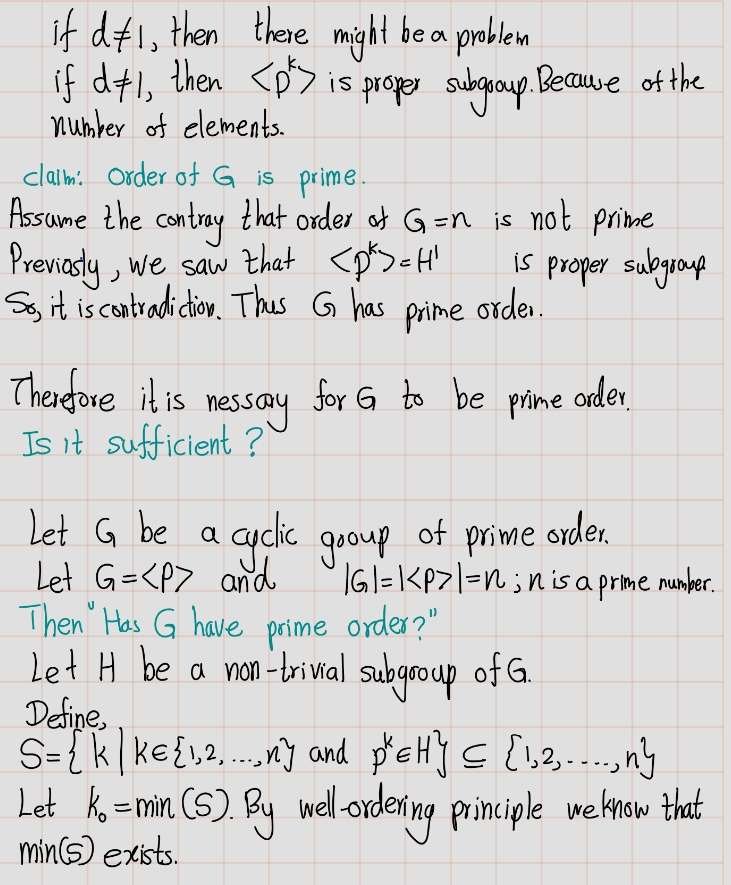 if d≠1, then there might be a problem
if d≠1, then <p^k> is proper subgroup. Because of the
number of elements.
claim: Order of G is prime.
Assume the contray that order of G=n is not prime
Previosly, we saw that <p^k>=H' is proper subgroup
So, it is contradiction. Thus G has prime order.
Therefore it is nessary for G to be prime order.
Is it sufficient?
Let G be a cyclic group of prime order.
Let G=<p> and |G|=|<p>|=n ; n is a prime number.
Then "Has G have prime order?"
Let H be a non-trivial subgroup of G.
Define,
S={k | k∈{1,2,...,n} and p^k∈H} ⊆ {1,2,....,n}
Let k₀=min(S). By well-ordering principle we know that
min(S) exists.